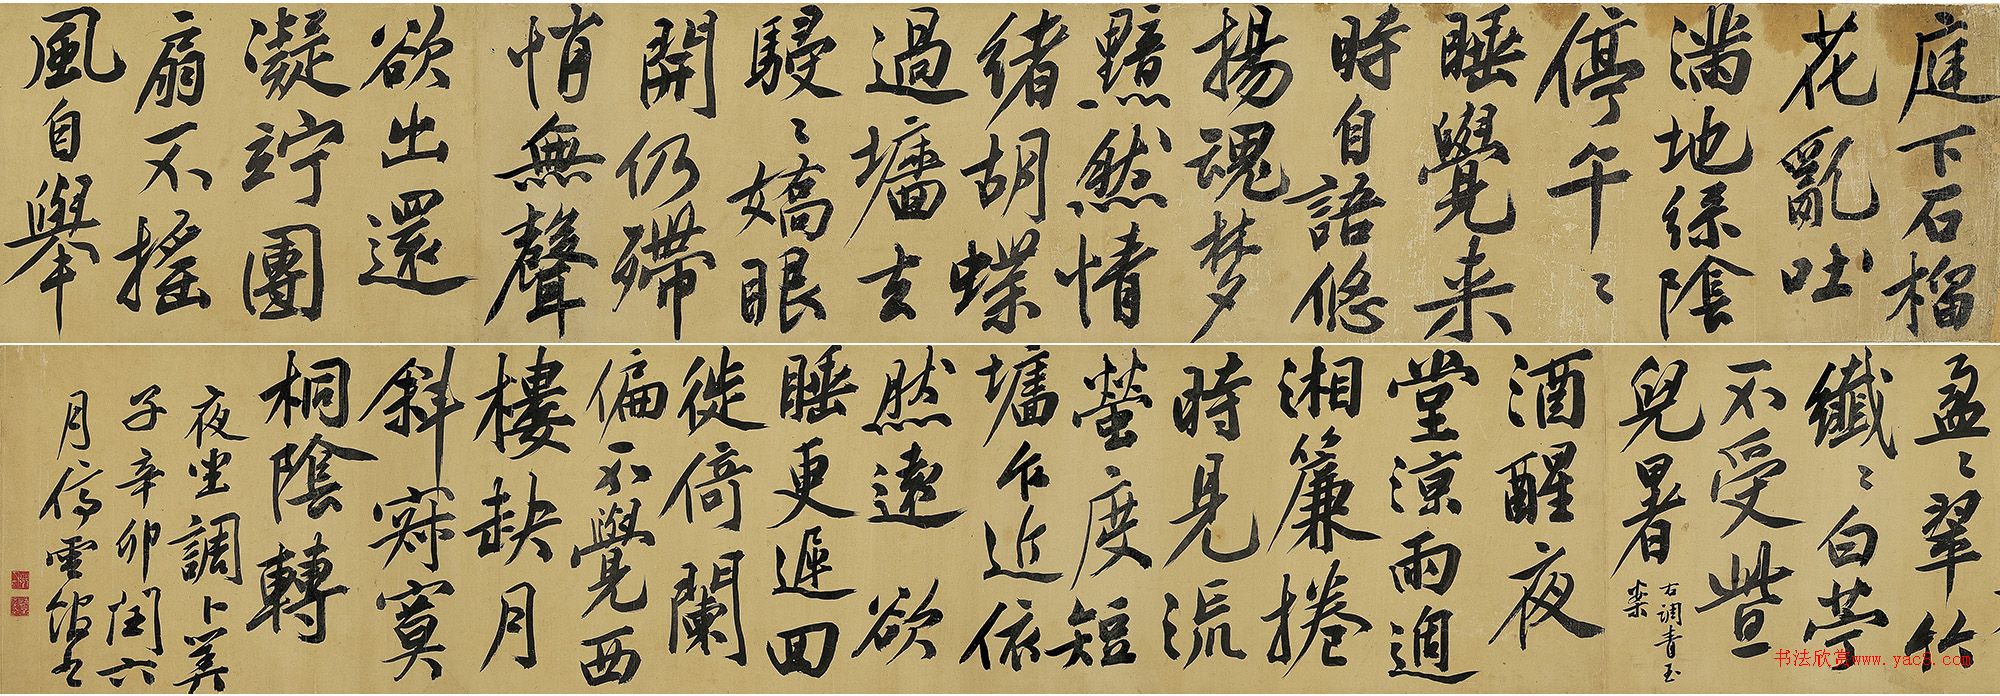 庭下石榴
花亂吐
滿地綠陰
停午〻
睡覺来
時自語悠
揚魂梦
黯然情
緒胡蝶
過墻去
駸〻嬌眼
開仍殢
悄無聲
欲出還
凝竚團
扇不摇
風自舉
盈〻翠竹
纖〻白苧
不受些
兒暑
右調青玉
案
酒醒夜
堂涼雨過
湘簾捲
時見流
螢度短
墻乍近依
然遠欲
睡更遲回
徙倚闌
偏不覺西
樓缺月
斜寂寞
桐陰轉
夜坐調卜美
子辛卯閏六
月
书法欣赏www.yac8.com